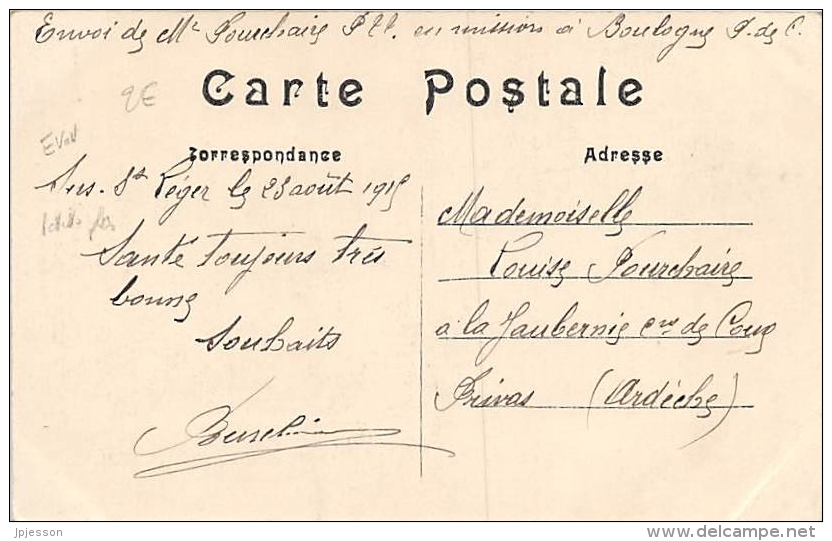 Envoi de Mr Fourchaire P22. en mission à Boulogne P. de C.
2E
Carte Postale
Correspondance
Adresse
St Léger le 23 août 1915
Santé toujours très
bonne
Souhaits
Mademoiselle
Louise Fourchaire
à la Jaubernie cne de Coux
Privas (Ardèche)
jpjesson
delcampe.net